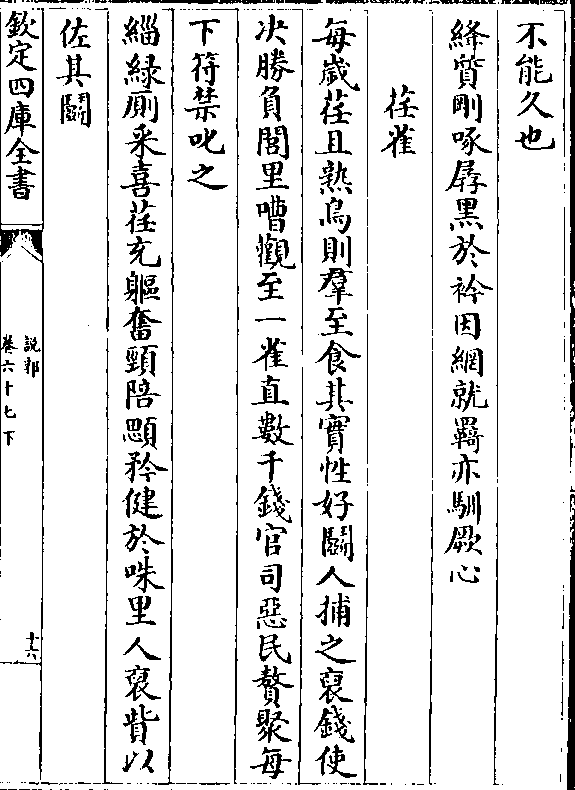 不能久也
絳質剛啄孱黑於衿因網就羇亦馴厥心
荏雀
每歲荏且熟鳥則羣至食其實性好鬭人捕之裒錢使
决勝負閭里嘈觀至一雀直數千錢官司惡民贅聚每
下符禁叱之
緇緑厠采喜荏充軀奮頸陪顋矜健於咮里人裒貲以
佐其鬭
欽定四庫全書
說郛
卷六十七下
十六